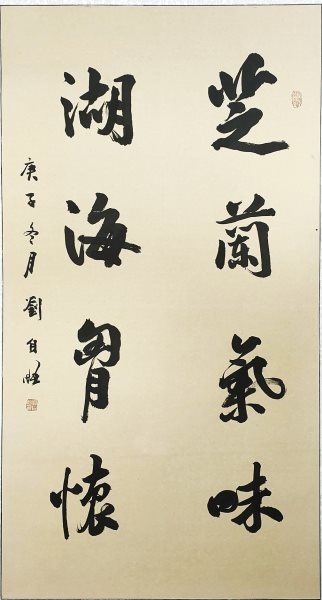 芝蘭氣味
湖海胷懷
庚子冬月劉自